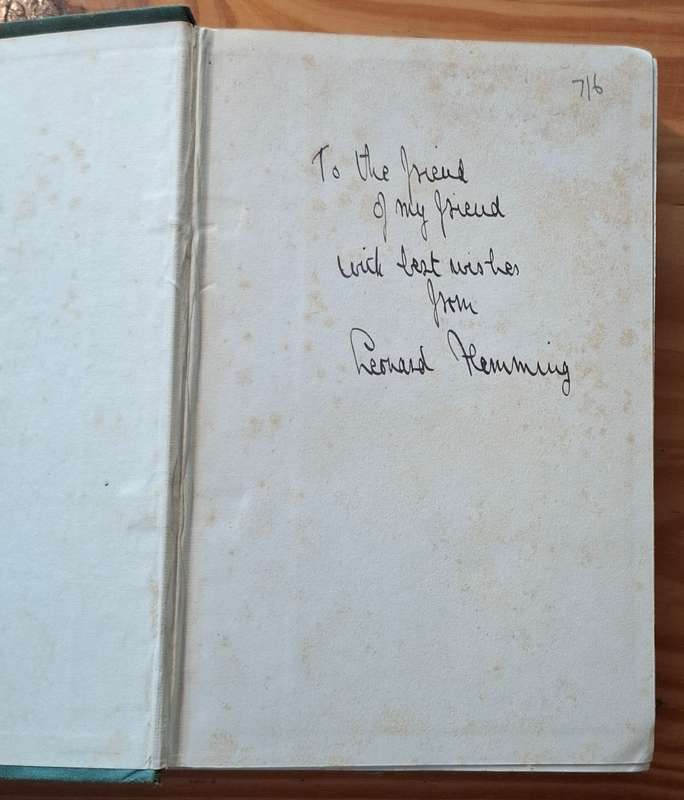 7/6
To the friend
of my friend
with best wishes
from
Leonard Flemming